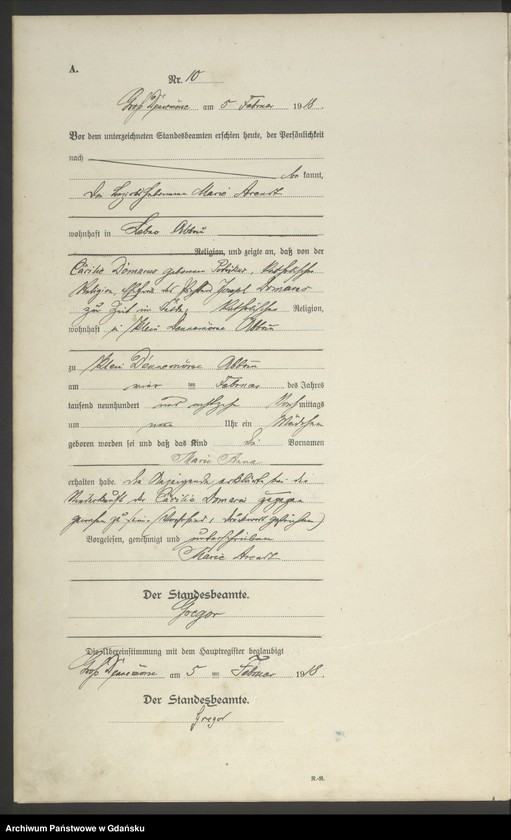 A.
Nr. 10
Groß am 5 Februar 1918.
Vor dem unterzeichneten Standesbeamten erschien heute, der Persönlichkeit
nach
be kannt,
die Bezirkshebamme Marie Arendt
wohnhaft in Abbau
Religion, und zeigte an, daß von der
Cäcilie Domaros geborenen katholische
Religion, Ehefrau des Josef Domaros
zur Zeit im Felde, katholischer Religion,
wohnhaft in Klein Abbau
zu Klein Abbau
am vier ten Februar des Jahres
tausend neunhundert und achtzehn mittags
um Uhr ein Mädchen
geboren worden sei und daß das Kind die Vornamen
Marie Anna
erhalten habe. Die Anzeigende erklärte bei der
Niederkunft der Cäcilie Domaros zugegen
gewesen zu sein. (Vorstehend, Druckwort gestrichen)
Vorgelesen, genehmigt und unterschrieben
Marie Arendt
Der Standesbeamte.
Gregor
Die Übereinstimmung mit dem Hauptregister beglaubigt
Groß am 5 ten Februar 1918.
Der Standesbeamte.
Gregor
R.-R.
Archiwum Państwowe w Gdańsku